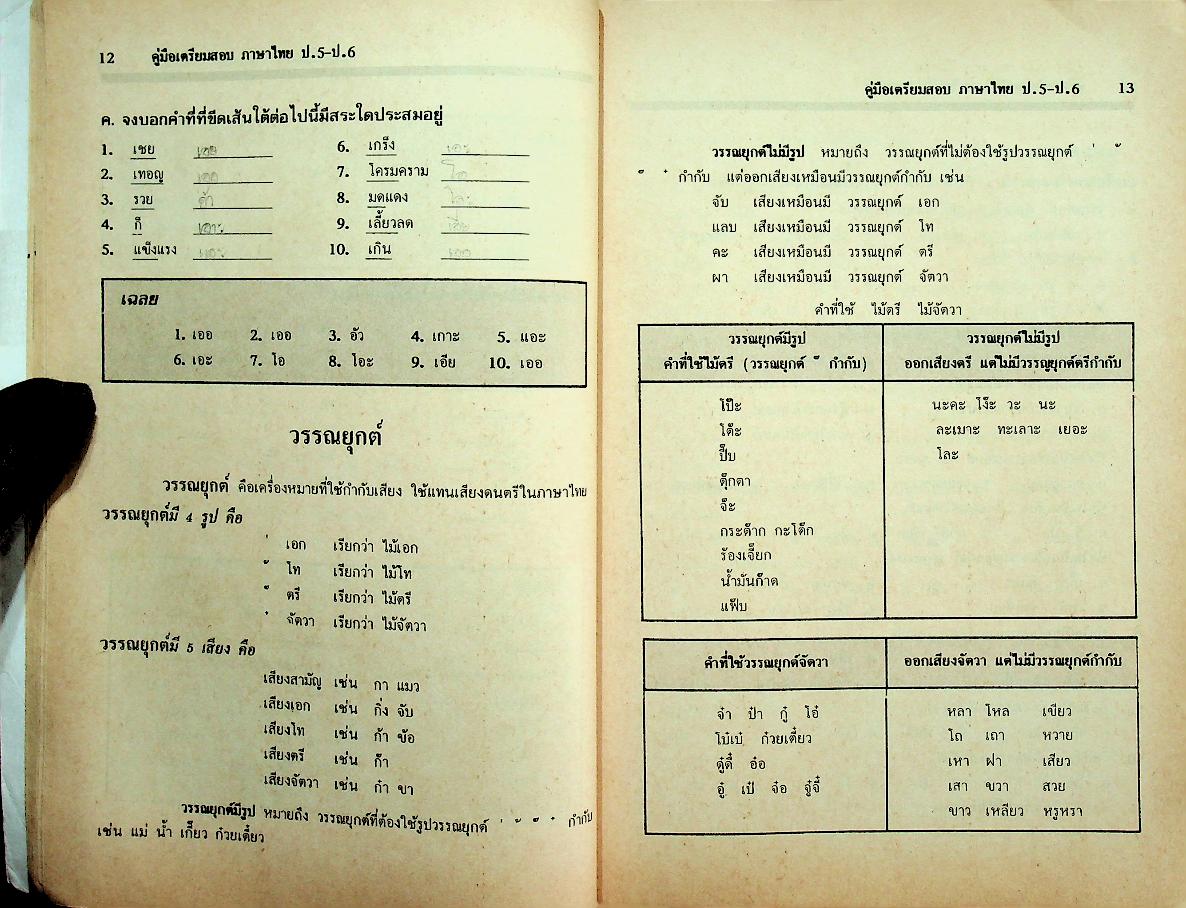 12 คู่มือเตรียมสอบ ภาษาไทย ป.5-ป.6
ค. จงบอกคำที่ที่ขีดเส้นใต้ต่อไปนี้มีสระใดประสมอยู่
1. เชย เออ 6. เกร็ง เอะ
2. เทอญ เออ 7. โครมคราม โอ
3. รวย 8. มดแดง โอะ
4. ก็ เอาะ 9. เลี้ยวลด เอีย
5. แข็งแรง แอะ 10. เกิน เออ
เฉลย
1. เออ 2. เออ 3. อัว 4. เกาะ 5. แอะ
6. เอะ 7. โอ 8. โอะ 9. เอีย 10. เออ
วรรณยุกต์
วรรณยุกต์ คือเครื่องหมายที่ใช้กำกับเสียง ใช้แทนเสียงดนตรีในภาษาไทย
วรรณยุกต์มี 4 รูป คือ
่ เอก เรียกว่า ไม้เอก
้ โท เรียกว่า ไม้โท
๊ ตรี เรียกว่า ไม้ตรี
๋ จัตวา เรียกว่า ไม้จัตวา
วรรณยุกต์มี 5 เสียง คือ
เสียงสามัญ เช่น กา แมว
เสียงเอก เช่น กิ่ง จับ
เสียงโท เช่น ก้า ข้อ
เสียงตรี เช่น ก๊า
เสียงจัตวา เช่น ก๋า ขา
วรรณยุกต์มีรูป หมายถึง วรรณยุกต์ที่ต้องใช้รูปวรรณยุกต์ ่ ้ ๊ ๋ กำกับ
เช่น แม่ น้ำ เกี๊ยว ก๋วยเตี๋ยว
คู่มือเตรียมสอบ ภาษาไทย ป.5-ป.6 13
วรรณยุกต์ไม่มีรูป หมายถึง วรรณยุกต์ที่ไม่ต้องใช้รูปวรรณยุกต์ ่ ้
๊ ๋ กำกับ แต่ออกเสียงเหมือนมีวรรณยุกต์กำกับ เช่น
จับ เสียงเหมือนมี วรรณยุกต์ เอก
แลบ เสียงเหมือนมี วรรณยุกต์ โท
คะ เสียงเหมือนมี วรรณยุกต์ ตรี
ผา เสียงเหมือนมี วรรณยุกต์ จัตวา
คำที่ใช้ ไม้ตรี ไม้จัตวา
วรรณยุกต์มีรูป วรรณยุกต์ไม่มีรูป
คำที่ใช้ไม้ตรี (วรรณยุกต์ ๊ กำกับ) ออกเสียงตรี แต่ไม่มีวรรญยุกต์ตรีกำกับ
โป๊ะ นะคะ โง๊ะ วะ นะ
โต๊ะ ละเมาะ ทะเลาะ เยอะ
ปี๊บ โละ
ตุ๊กตา
จ๊ะ
กระต๊าก กะโต๊ก
ร้องเจี๊ยก
น้ำมันก๊าด
แฟ๊บ
คำที่ใช้วรรณยุกต์จัตวา ออกเสียงจัตวา แต่ไม่มีวรรณยุกต์กำกับ
จ๋า ป๋า กู๋ โอ๋ หลา โหล เขียว
โบ๋เบ๋ ก๋วยเตี๋ยว โถ เถา หวาย
ตู๋ตี๋ อ๋อ เหา ฝา เสียว
อู๋ เป๋ จ๋อ จู๋จี๋ เสา ขวา สวย
ขาว เหลียว หรูหรา